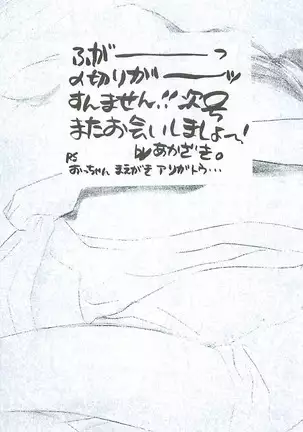 ふがーーーっ
〆切りがーーーッ
すんません!!次号
またお会いしましょっ!
by あかざき。
PS
おっちゃん まえがき アリガトウ…